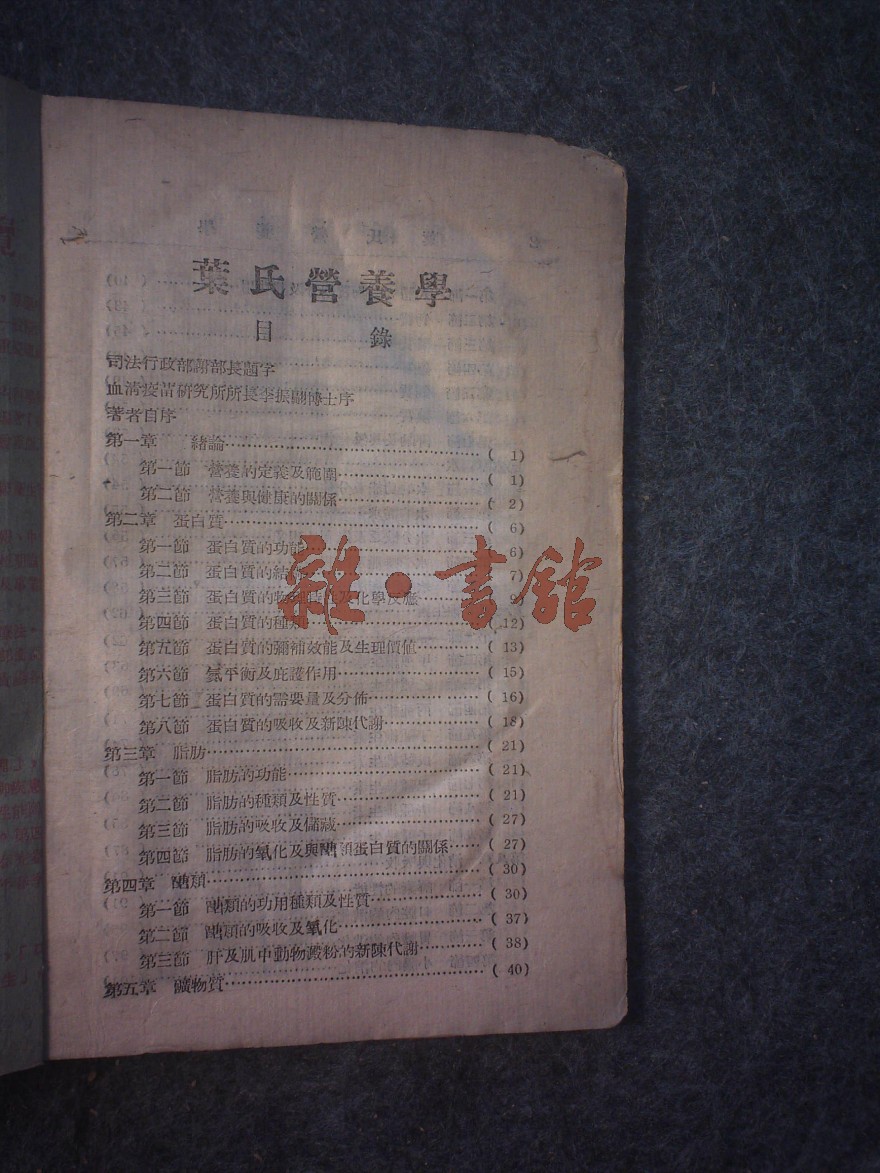 葉氏營養學
目錄
司法行政部謝部長題字
血清疫苗研究所所長李振翩博士序
著者自序
第一章 緒論……( 1)
第一節 營養的定義及範圍……( 1)
第二節 營養與健康的關係……( 2)
第二章 蛋白質……( 6)
第一節 蛋白質的功能……( 6)
第二節 蛋白質的結構……( 7)
第三節 蛋白質的物理特性及化學反應……( 9)
第四節 蛋白質的種類……( 12)
第五節 蛋白質的彌補效能及生理價值……( 13)
第六節 氮平衡及庇護作用……( 15)
第七節 蛋白質的需要量及分佈……( 16)
第八節 蛋白質的吸收及新陳代謝……( 18)
第三章 脂肪……( 21)
第一節 脂肪的功能……( 21)
第二節 脂肪的種類及性質……( 21)
第三節 脂肪的吸收及儲藏……( 27)
第四節 脂肪的氧化及與醣類蛋白質的關係……( 27)
第四章 醣類……( 30)
第一節 醣類的功用種類及性質……( 30)
第二節 醣類的吸收及氧化……( 37)
第三節 肝及肌中動物澱粉的新陳代謝……( 38)
第五章 礦物質……( 40)
雜·書館